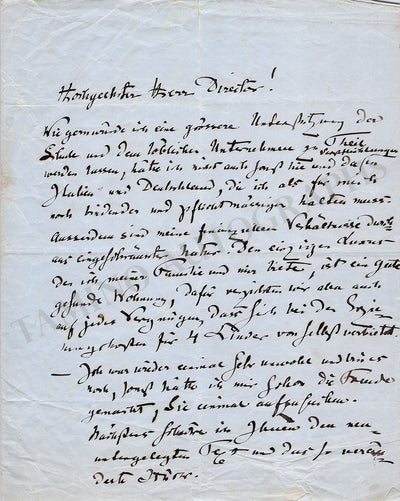 Hochgeehrter Herr Director!
Wie gern würde ich eine grössere Unterstützung der
Schule und dem löblichen Unternehmen zu Theil
werden lassen, hätte ich nicht auch sonst hie und da in Verpflichtungen
Italien und Deutschland, die ich als für mich
noch bindender und pflichtmässiger halten muss
Ausserdem sind meine finanzellen Verhältnisse durch-
aus eingeschränkter Natur. Den einzigen Luxus
den ich meiner Familie und mir biete, ist ein gute
gesunde Wohnung, dafür verzichten wir aber auch
auf jedes Vergnügen, dass sich bei den Erzie-
hungskosten für 4 Kinder von selbst verbietet.
— Ich war wieder einmal sehr unwohl und bin es
noch, sonst hätte ich mir schon die Freude
gemacht, Sie einmal aufzusuchen.
Nächstens schicke ich Ihnen den neu
untergelegten Text und das so verän-
derte Stück.
TAMINO AUTOGRAPHS